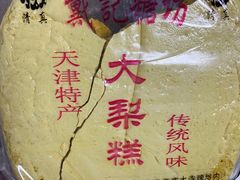 清真
清真
記糖坊
天津特产
大梨糕
传统风味